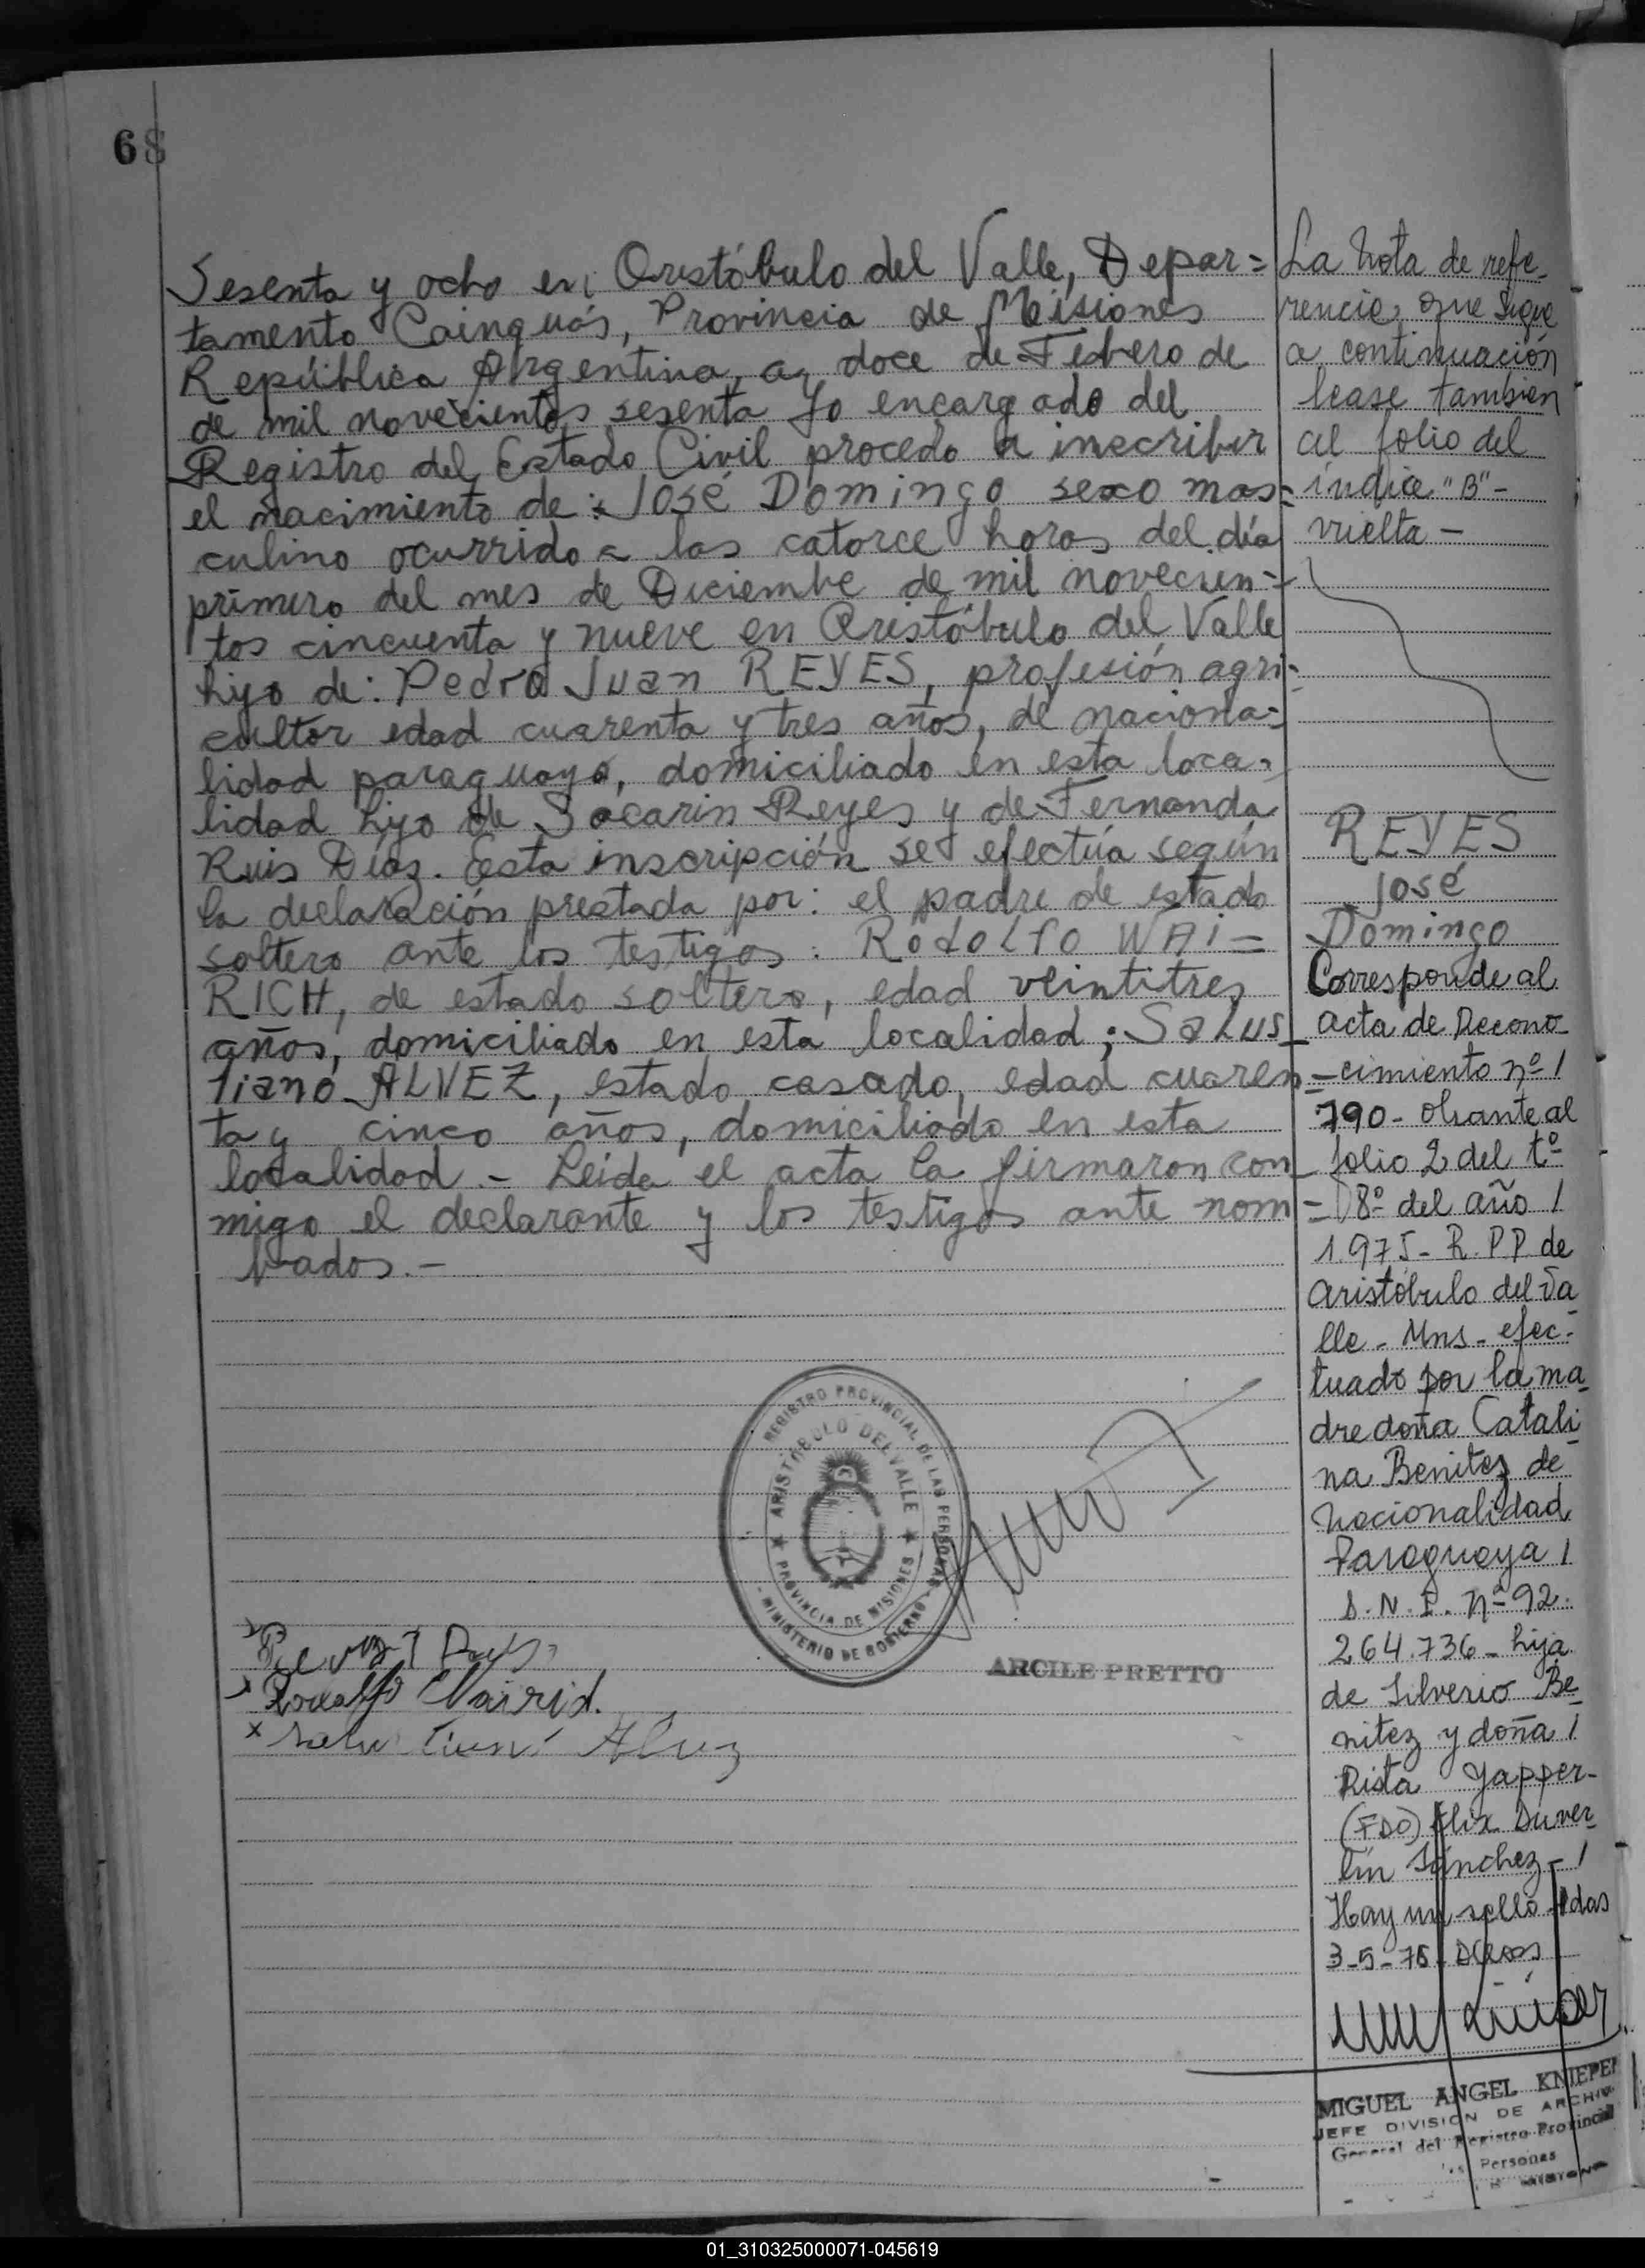 68
Sesenta y ocho en Aristóbulo del Valle, Depar=
tamento Cainguás, Provincia de Misiones
República Argentina, a doce de Febrero de
de mil novecientos sesenta yo encargado del
Registro del Estado Civil procedo a inscribir
el nacimiento de: José Domingo sexo mas=
culino ocurrido a las catorce horas del día
primero del mes de Diciembre de mil novecien=
tos cincuenta y nueve en Aristóbulo del Valle
hijo de: Pedro Juan REYES, profesión agri=
cultor edad cuarenta y tres años, de naciona=
lidad paraguayo, domiciliado en esta loca=
lidad hijo de Socarin Reyes y de Fernanda
Ruis Díaz. Esta inscripción se efectúa según
la declaración prestada por: el padre de estado
soltero ante los testigos: Rodolfo WAI=
RICH, de estado soltero, edad veintitres
años, domiciliado en esta localidad; Salus_
Tiano ALVEZ, estado casado, edad cuaren=
ta y cinco años, domiciliado en esta
localidad.- Leída el acta la firmaron con_
migo el declarante y los testigos ante nom=
brados.-
REGISTRO PROVINCIAL DE LAS PERSONAS
ARISTÓBULO DEL VALLE
PROVINCIA DE MISIONES
MINISTERIO DE GOBIERNO
ARCILE PRETTO
La Nota de refe_
rencia que sigue
a continuación
lease tambien
al folio del
índice "B"-
vuelta-
REYES
José
Domingo
Corresponde al
acta de Recono_
cimiento nº /
790- obrante al
folio 2 del tº
8º del año /
1.975- R.P.P. de
Aristóbulo del Va_
lle- Mns- efec_
tuado por la ma_
dre doña Catali_
na Benitez de
nacionalidad
Paraguaya /
D.N.I. nº 92.
264.736- hija
de Silverio Be_
nitez y doña /
Rista Yapper-
(FDO) Elix Duver_
lin Sánchez- /
Hay un sello Pdas
3-5-76-
MIGUEL ANGEL KNIEPER
JEFE DIVISION DE ARCHIVO
General del Registro Provincial
Personas
01_310325000071-045619